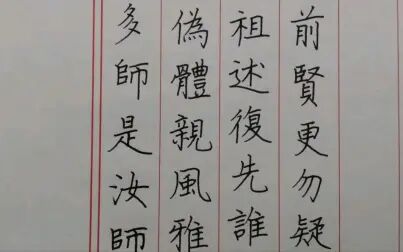 前賢更勿疑
祖述復先誰
偽體親風雅
多師是汝師